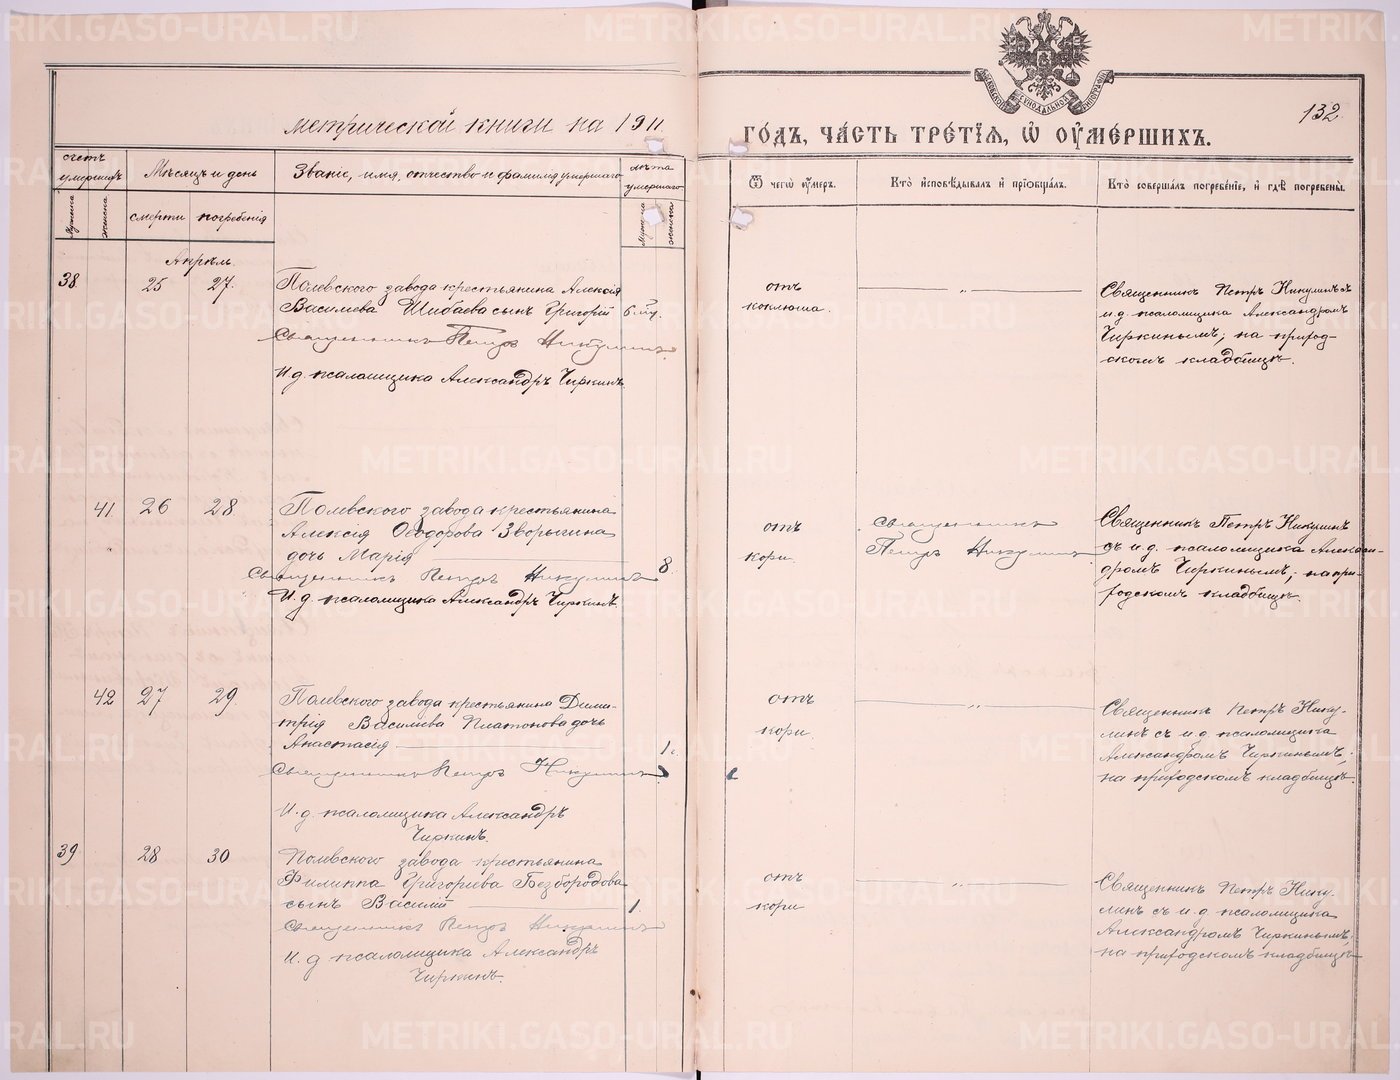 132
метрической книги на 1911
ГОДЪ, ЧАСТЬ ТРЕТІЯ, Ѿ ОУМЕРШИХЪ.
счетъ умершихъ
Мѣсяцъ и день
Званіе, имя, отчество и фамилія умершаго
лѣта умершаго
Ѿ чегѡ оумеръ.
Кто исповѣдывалъ и пріобщалъ.
Кто совершалъ погребеніе, и гдѣ погребены.
мужска
женска
смерти
погребенія
Апрѣль.
38
25
27.
Полевского завода крестьянина Алексія
Василева Шибаева сынъ Григорій
Священникъ Петръ Никулинъ
И.д. псаломщика Александръ Чиркинъ.
отъ
коклюша.
Священникъ Петръ Никулинъ съ
и.д. псаломщика Александромъ
Чиркинымъ; на приход-
скомъ кладбищѣ.
41
26
28
Полевского завода крестьянина
Алексія Ѳеодорова Зворыгина
дочь Марія
8
Священникъ Петръ Никулинъ
И.д. псаломщика Александръ Чиркинъ.
отъ
кори.
Священникъ
Петръ Никулинъ
Священникъ Петръ Никулинъ
съ и.д. псаломщика Алексан-
дромъ Чиркинымъ; на при-
ходскомъ кладбищѣ.
42
27
29
Полевского завода крестьянина Дими-
трія Василева Платонова дочь
Анастасія
1.
Священникъ Петръ Никулинъ
И.д. псаломщика Александръ
Чиркинъ.
отъ
кори.
Священникъ Петръ Нику-
линъ съ и.д. псаломщика
Александромъ Чиркинымъ;
на приходскомъ кладбищѣ.
39
28
30
Полевского завода крестьянина
Филиппа Григорьева Безбородова
сынъ Василій
1.
Священникъ Петръ Никулинъ
И.д псаломщика Александръ
Чиркинъ.
отъ
кори
Священникъ Петръ Нику-
линъ съ и.д. псаломщика
Александромъ Чиркинымъ;
на приходскомъ кладбищѣ
METRIKI.GASO-URAL.RU